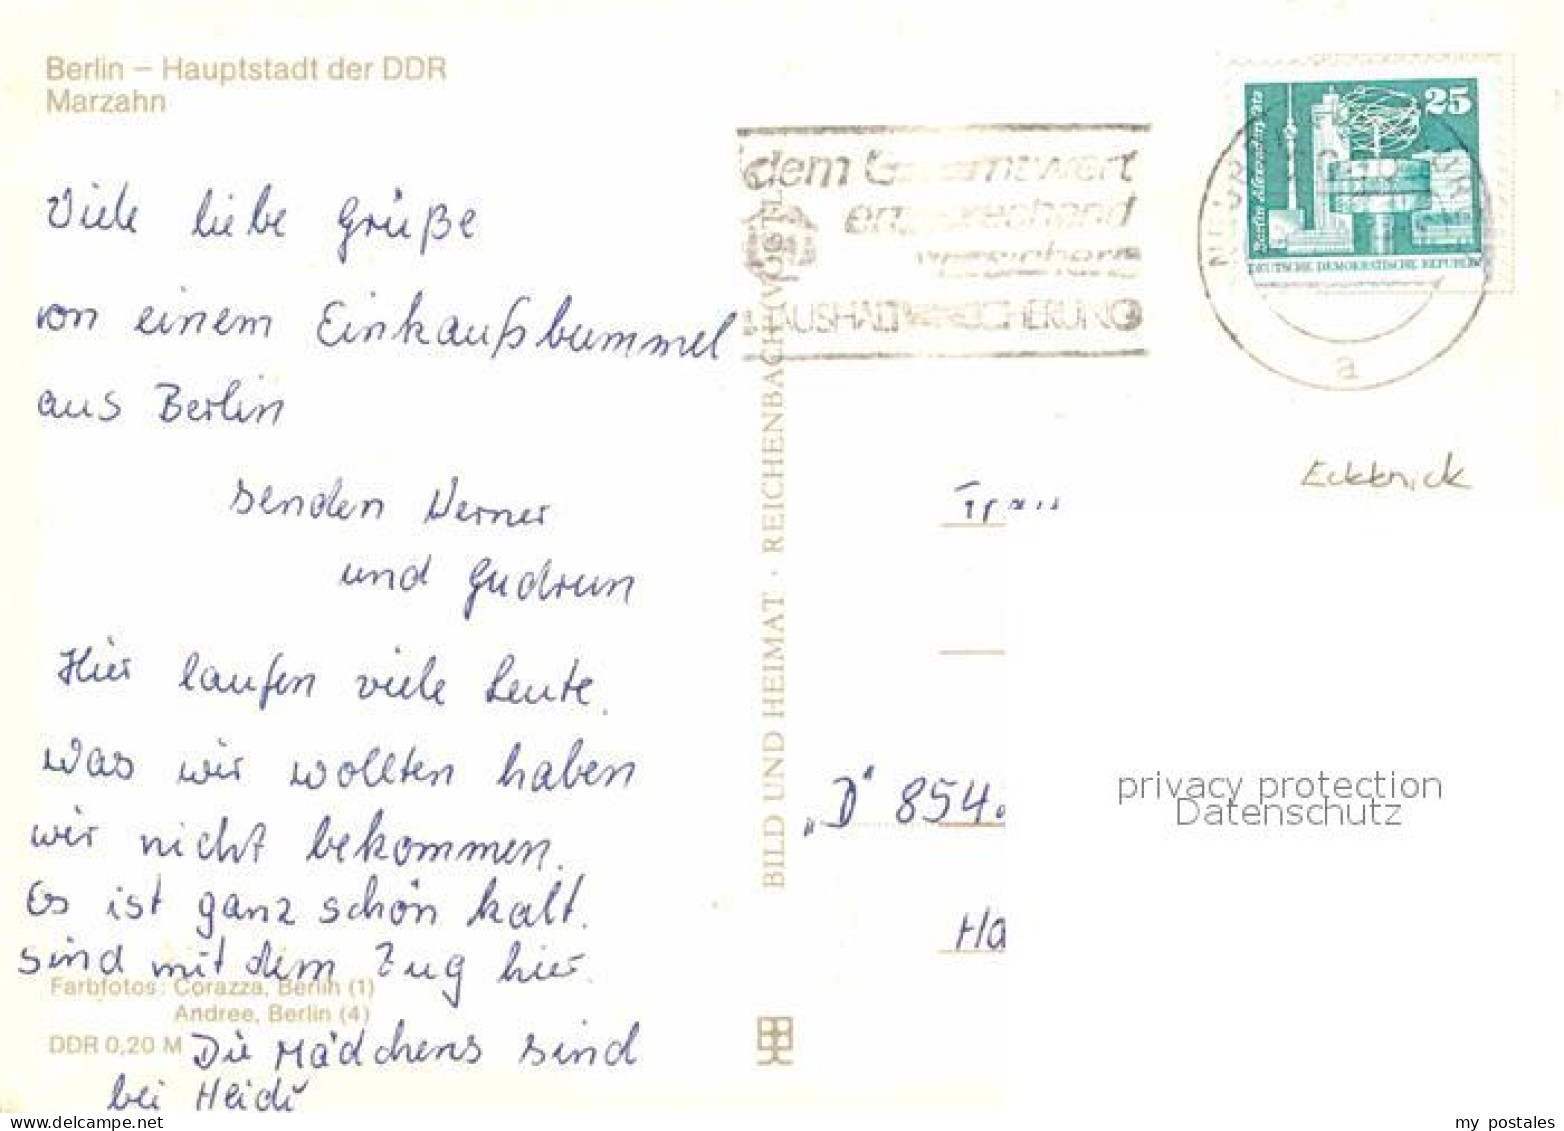 Berlin – Hauptstadt der DDR
Marzahn
Viele liebe Grüße
von einem Einkaufsbummel
aus Berlin
senden Werner
und Gudrun
Hier laufen viele Leute.
Was wir wollten haben
wir nicht bekommen.
Es ist ganz schön kalt.
Sind mit dem Zug hier.
Farbfotos: Corazza, Berlin (1)
Andree, Berlin (4)
DDR 0,20 M
Die Mädchens sind
bei Heidi
BILD UND HEIMAT · REICHENBACH
dem
HAUSHALTVERSICHERUNG
25
Berlin Alexanderplatz
DEUTSCHE DEMOKRATISCHE REPUBLIK
a
Eckknick
„D“ 854
Ha
privacy protection
Datenschutz
my postales